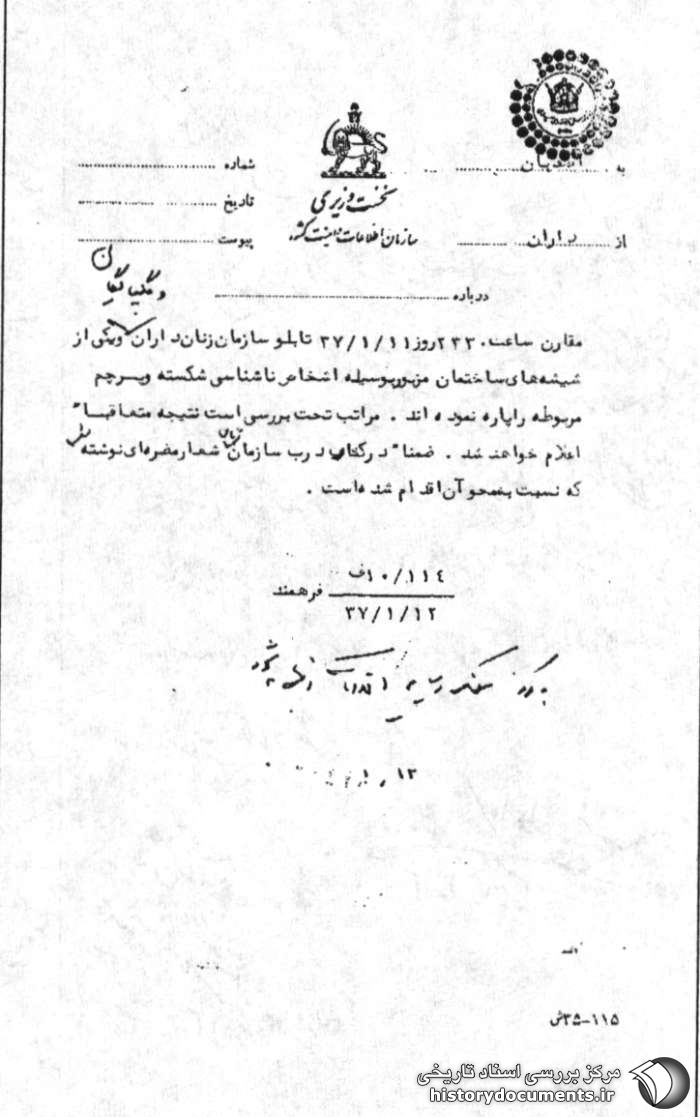 نخست وزیری
سازمان اطلاعات و امنیت کشور
به
از داران
شماره
تاریخ
پیوست
درباره
مقارن ساعت ۲۳۳۰ روز ۳۷/۱/۱۱ تابلو سازمان زنان داران ویکی از
شیشه های ساختمان مزبور بوسیله اشخاص ناشناسی شکسته و پرچم
مربوطه را پاره نموده اند . مراتب تحت بررسی است نتیجه متعاقباً
اعلام خواهد شد . ضمناً در کنار درب سازمان زنان شعار مضره ای نوشته
که نسبت بمحو آن اقدام شده است .
۱۰/۱۱٤ف
فرهمند
۳۷/۱/۱۲
۱۱۵-۳۵ش
مرکز بررسی اسناد تاریخی
historydocuments.ir